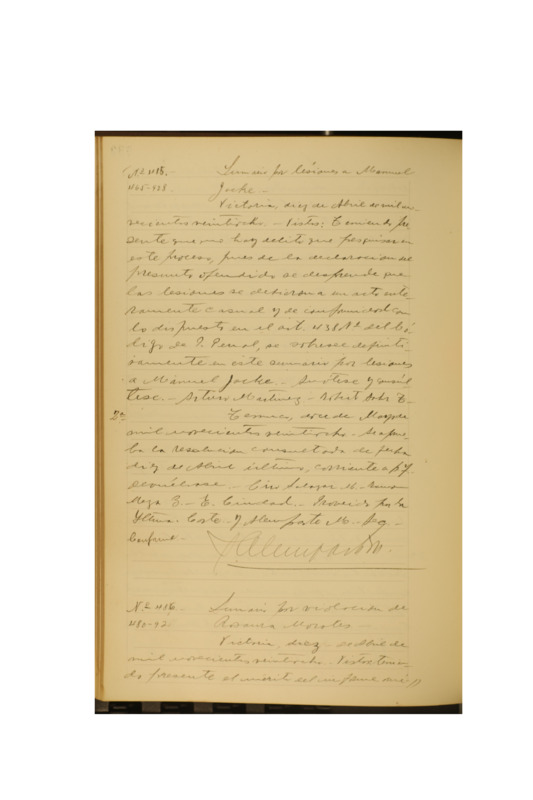 Nº 115.- Sumario por lesiones a Manuel
1165-928 Jocke.-
Victoria, diez de Abril de mil no
vecientos veintiocho.- Vistos: Teniendo pre
sente que no hay delito que pesquisar en
este proceso, pues de la declaracion del
presunto ofendido se desprende que
las lesiones se debieron a un acto ente
ramente casual y de conformidad con
lo dispuesto en el art. 438 Nº del Có
digo de P. Penal, se sobresee definiti
vamente en este sumario por lesiones
a Manuel Jocke.- Anótese y consúl
tese.- Arturo Martinez.- Robert
2a Temuco, doce de Mayo de
mil novecientos veintiocho.- Se aprue
ba la resolucion consultada de fecha
diez de Abril último, corriente a f 7.
Devuélvase.- Ciro Salazar M.-
Moya G.- E. Ciudad.- Proveido por la
Iltma. Corte.- J. Alemparte M.- Seg.-
Conforme.-
J Alemparte M.
N.º 116.- Sumario por violacion de
1180-92 Rosaura Morales.-
Victoria, diez de Abril de
mil novecientos veintiocho. Vistos: tenien
do presente el mérito del informe